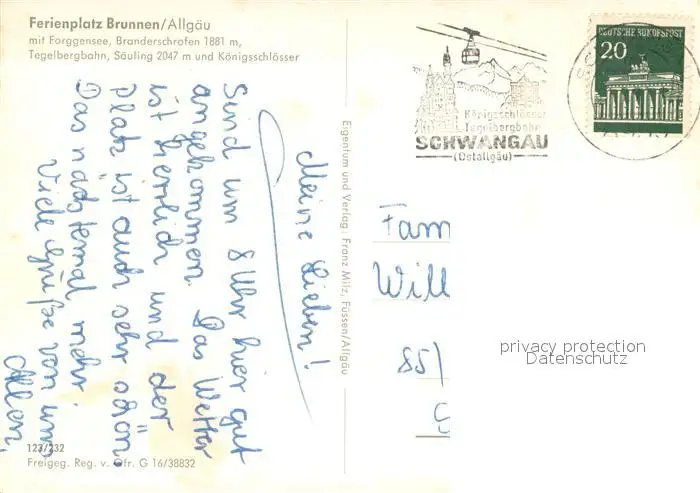 Ferienplatz Brunnen/Allgäu
mit Forggensee, Branderschrofen 1881 m,
Tegelbergbahn, Säuling 2047 m und Königsschlösser
Meine Lieben!
Sind um 8 Uhr hier gut
angekommen. Das Wetter
ist herrlich und der
Platz ist auch sehr schön.
Das nächstemal mehr.
Viele Grüße von uns
Allen.
123/232
Freigeg. Reg. v. Ofr. G 16/38832
Eigentum und Verlag: Franz Milz, Füssen/Allgäu
Königsschlösser
Tegelbergbahn
SCHWANGAU
(Ostallgäu)
DEUTSCHE BUNDESPOST
20
Fam
Will
85/
privacy protection
Datenschutz